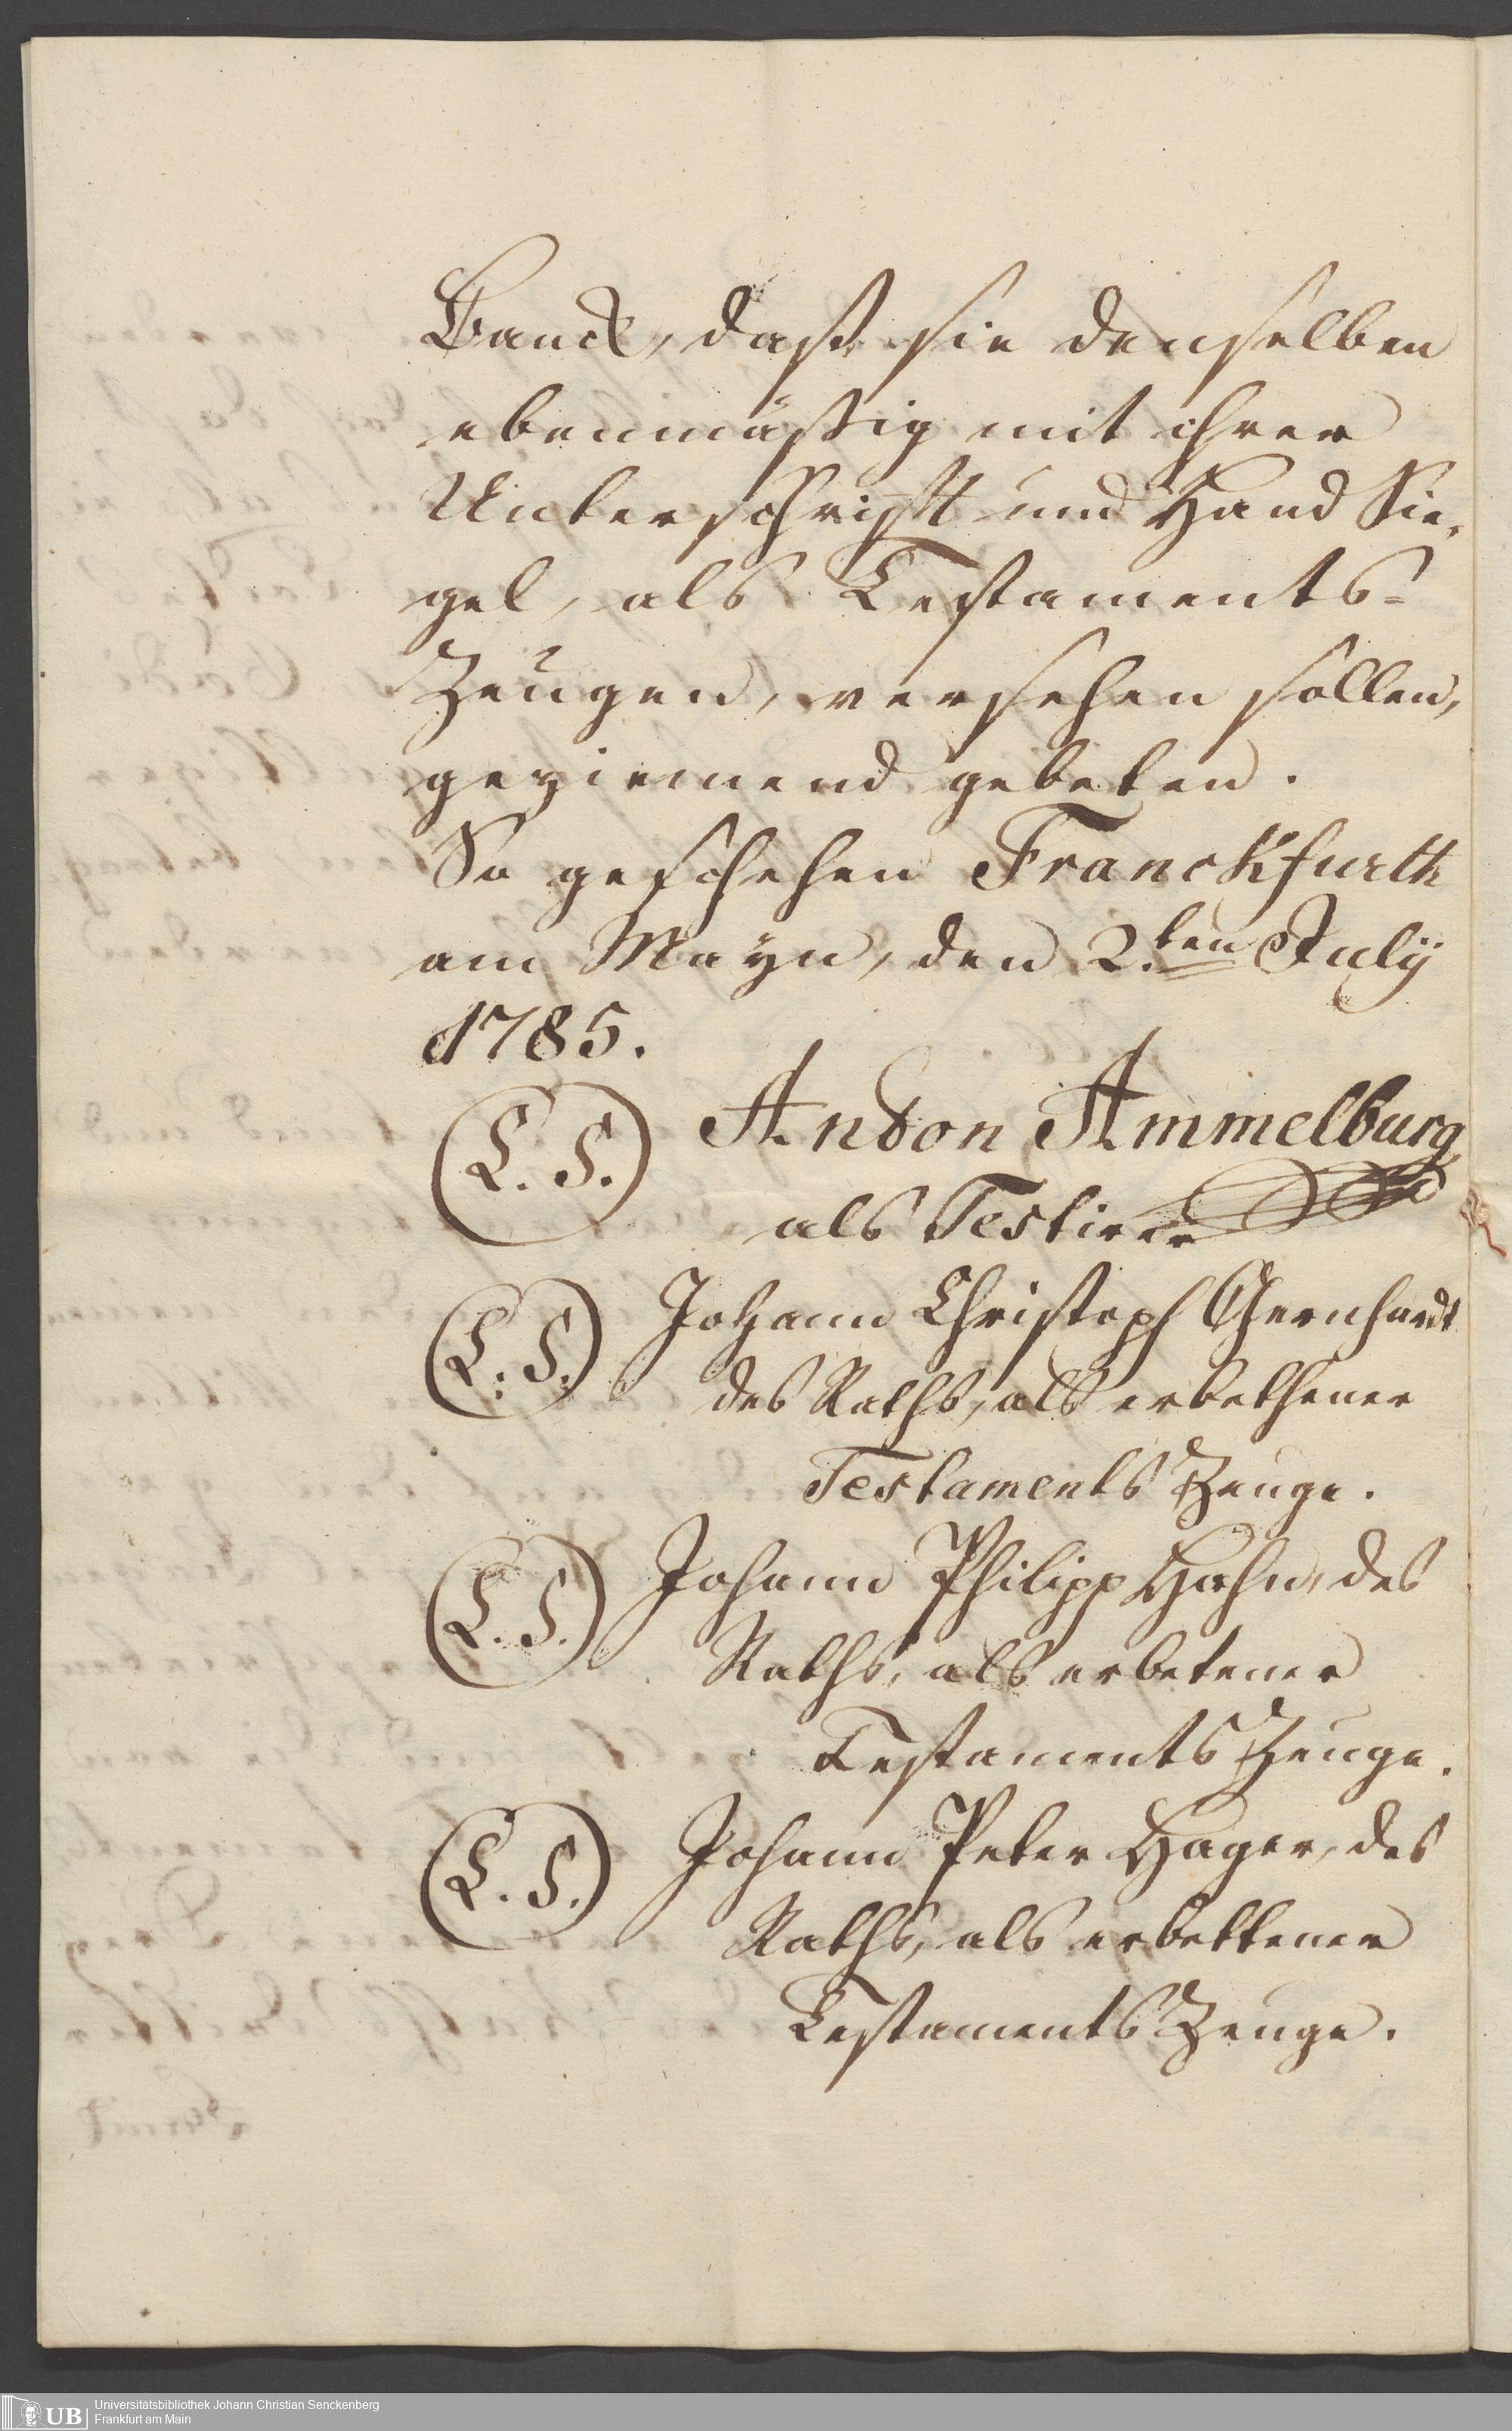 Banck, daß sie denselben
ebenmäßig mit ihrer
Unterschrifft und Hand Sie-
gel, als Testaments-
Zeugen, versehen sollen,
geziemend gebeten.
So geschehen Franckfurth
am Mayn, den 2.ten Julÿ
1785.
(L. S.) Andon Ammelburg
als Testirer
(L: S.) Johann Christoph Gernhardt
des Raths, als erbethener
Testaments Zeuge.
(L. S.) Johann Philipp Hahn, des
Raths, als erbetener
Testaments Zeuge.
(L. S.) Johann Peter Hager, des
Raths, als erbettener
Testaments Zeuge.
UB Universitätsbibliothek Johann Christian Senckenberg
Frankfurt am Main